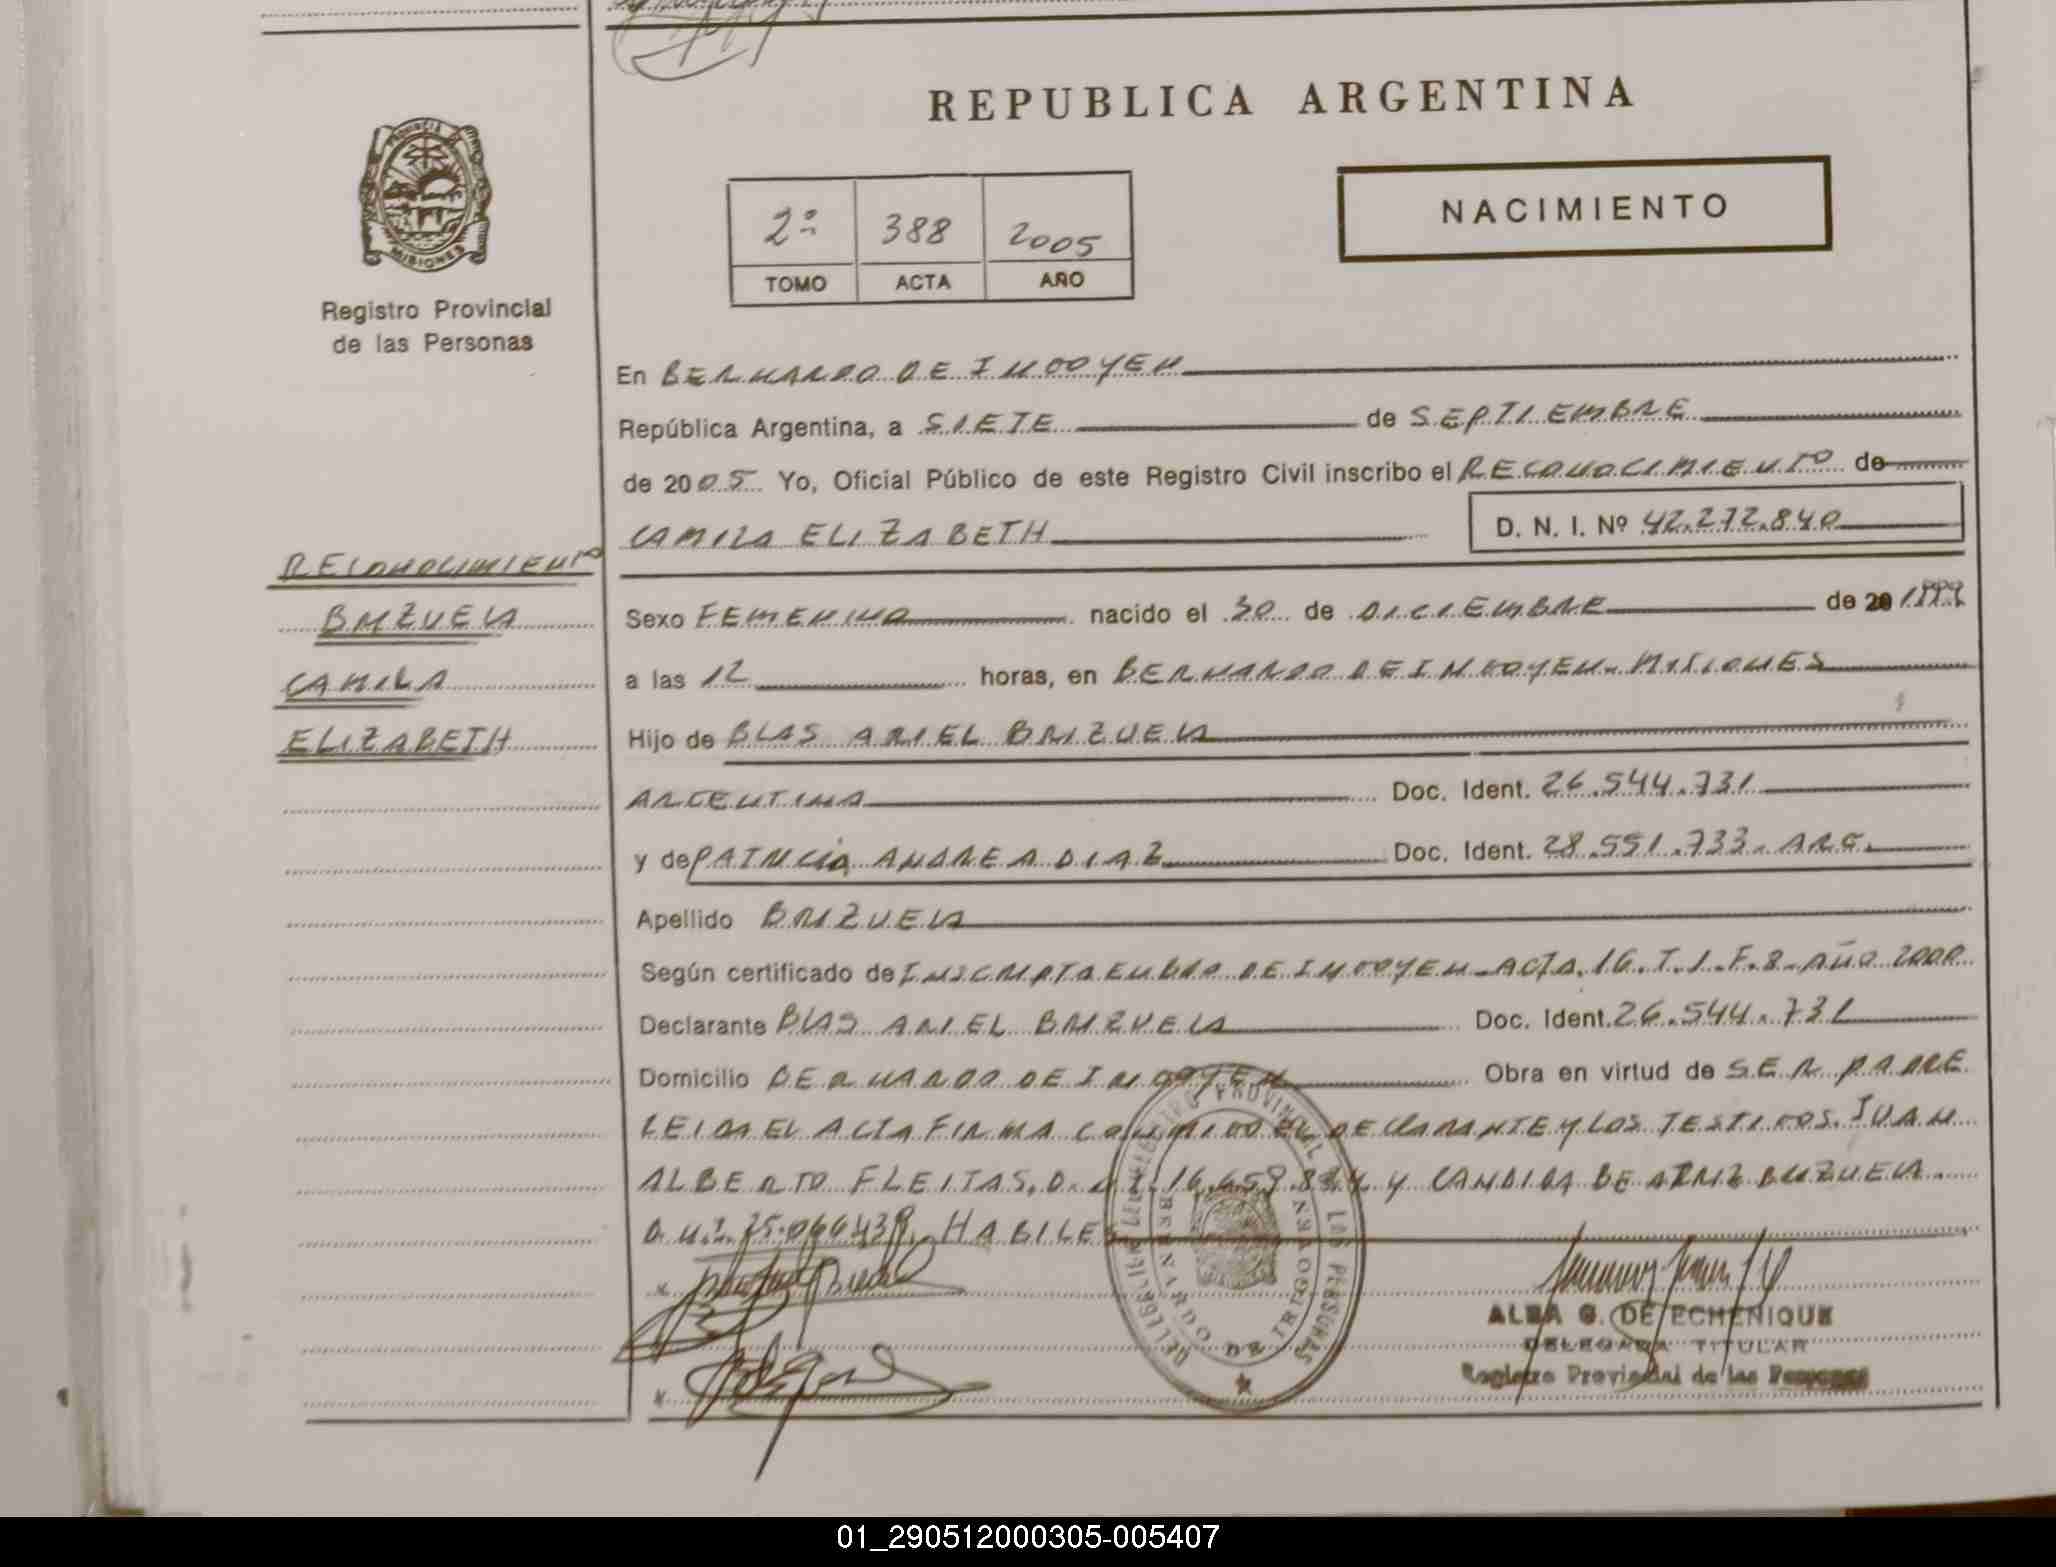 REPUBLICA ARGENTINA
PROVINCIA DE
MISIONES
Registro Provincial
de las Personas
2º 388 2005
TOMO ACTA AÑO
NACIMIENTO
En BERNARDO DE IRIGOYEN
República Argentina, a SIETE de SEPTIEMBRE
de 2005 Yo, Oficial Público de este Registro Civil inscribo el RECONOCIMIENTO de
CAMILA ELIZABETH D. N. I. Nº 42.272.840
RECONOCIMIENTO
BRIZUELA
CAMILA
ELIZABETH
Sexo FEMENINO nacido el 30 de DICIEMBRE de 20 1999
a las 12 horas, en BERNARDO DE IRIGOYEN - MISIONES
Hijo de BLAS ARIEL BRIZUELA
ARGENTINA Doc. Ident. 26.544.731
y de PATRICIA ANDREA DIAZ Doc. Ident. 28.551.733 - ARG.
Apellido BRIZUELA
Según certificado de INSCRIPTA EN BDO DE IRIGOYEN - ACTA. 16. T. 1. F. 8 - AÑO 2000
Declarante BLAS ARIEL BRIZUELA Doc. Ident. 26.544.731
Domicilio BERNARDO DE IRIGOYEN Obra en virtud de SER PADRE
LEIDA EL ACTA FIRMA CONMIGO EL DECLARANTE Y LOS TESTIGOS. JUAN
ALBERTO FLEITAS. D.N.I. 16.659.834 Y CANDIDA BEATRIZ BRIZUELA.
D.N.I. 25.066438. HABILES
REGISTRO PROVINCIAL DE LAS PERSONAS
BERNARDO DE IRIGOYEN
ALBA G. DE ECHENIQUE
DELEGADA TITULAR
Registro Provincial de las Personas
01_290512000305-005407